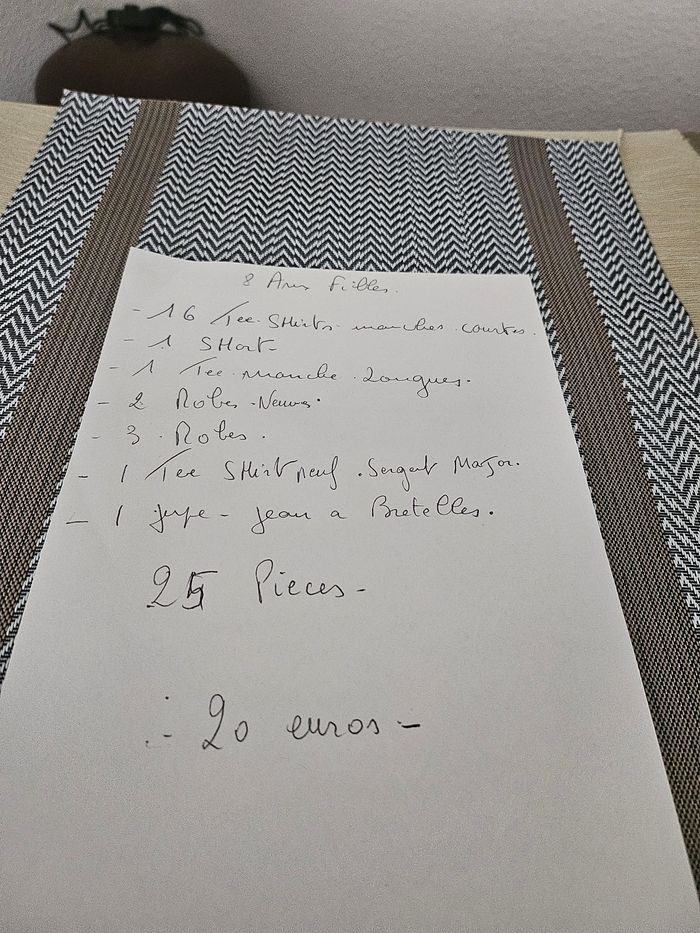 8 Ans Filles.
- 16 Tee-SHirts manches courtes.
- 1 SHort-
- 1 Tee manche Longues.
- 2 Robes-Neuves.
- 3 Robes.
- 1 Tee SHirt neuf. Sergent Major.
- 1 jupe - jean a Bretelles.
25 Pieces-
:- 20 euros -